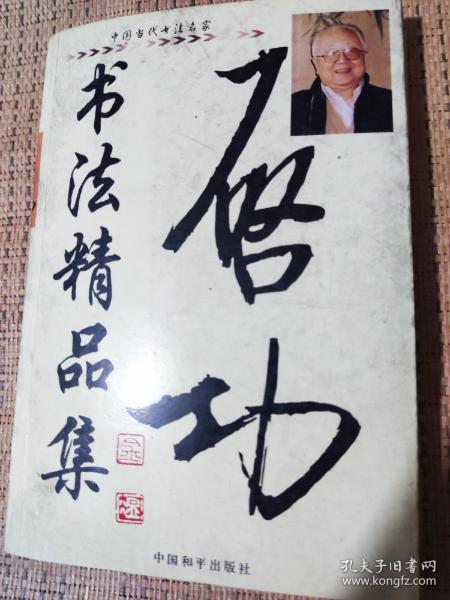 中国当代书法名家
启功
书法精品集
中国和平出版社
孔夫子旧书网
www.kongfz.com